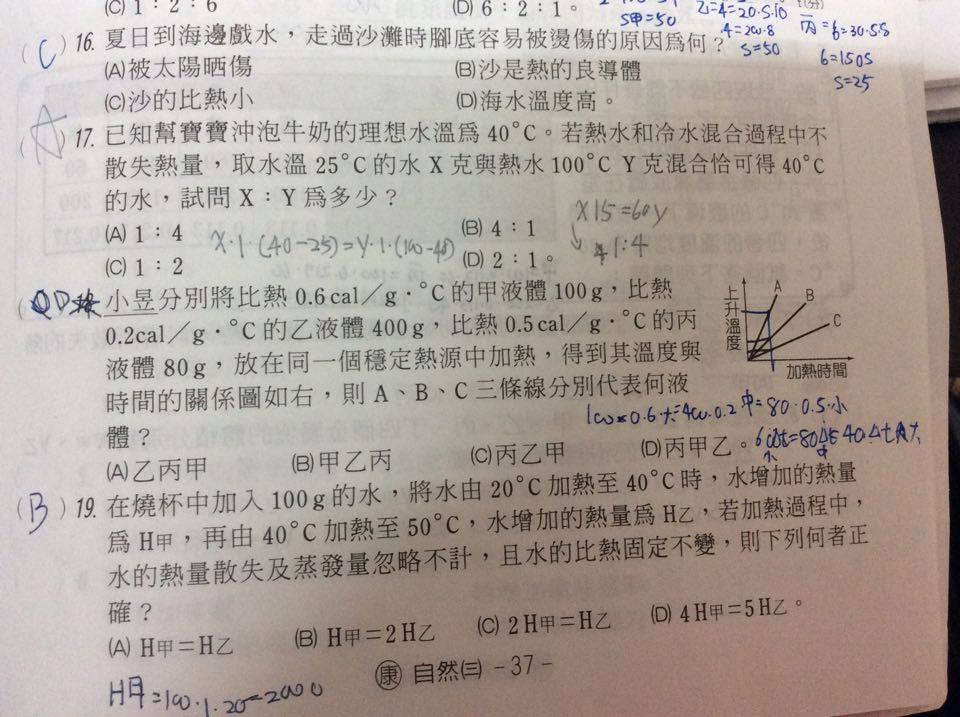 (C) 1:2:6 (D) 6:2:1。
S甲=50
乙=4=20.5.10
4=200.8
S=50
丙=6=30.S.S
6=150S
S=25
(C) 16. 夏日到海邊戲水,走過沙灘時腳底容易被燙傷的原因為何?
(A)被太陽晒傷 (B)沙是熱的良導體
(C)沙的比熱小 (D)海水溫度高。
(A) 17. 已知幫寶寶沖泡牛奶的理想水溫為 40°C。若熱水和冷水混合過程中不
散失熱量,取水溫 25°C 的水 X 克與熱水 100°C Y 克混合恰可得 40°C
的水,試問 X:Y 為多少?
(A) 1:4 (B) 4:1
(C) 1:2 (D) 2:1。
X·1·(40-25)=Y·1·(100-40)
X15=60Y
1:4
小昱分別將比熱 0.6 cal/g·°C 的甲液體 100 g,比熱
0.2cal/g·°C 的乙液體 400 g,比熱 0.5 cal/g·°C 的丙
液體 80 g,放在同一個穩定熱源中加熱,得到其溫度與
時間的關係圖如右,則 A、B、C 三條線分別代表何液
體?
上升溫度
A
B
C
加熱時間
100×0.6.大=400.0.2中=80.0.5.小
(A)乙丙甲 (B)甲乙丙 (C)丙乙甲 (D)丙甲乙。
(B) 19. 在燒杯中加入 100 g 的水,將水由 20°C 加熱至 40°C 時,水增加的熱量
為 H甲,再由 40°C 加熱至 50°C,水增加的熱量為 H乙,若加熱過程中,
水的熱量散失及蒸發量忽略不計,且水的比熱固定不變,則下列何者正
確?
(A) H甲=H乙 (B) H甲=2H乙 (C) 2H甲=H乙 (D) 4H甲=5H乙。
康 自然(三) -37-
H甲=100.1.20=2000